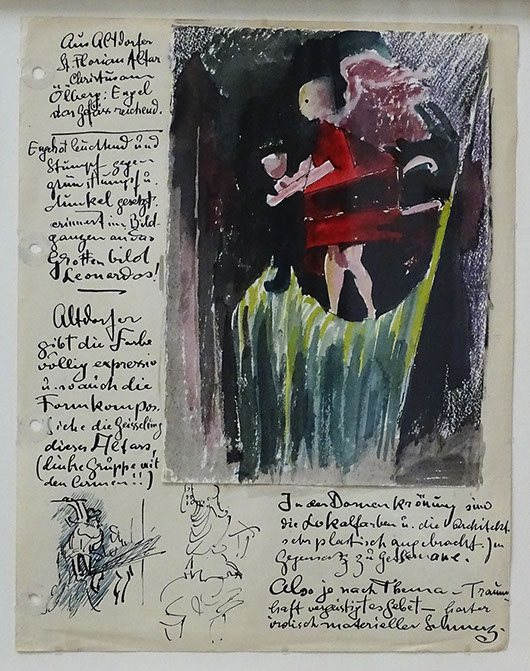 Aus Altdorfer
St. Florian Altar
Christus am
Ölberg: Engel
das Gefäss reichend.
Engelrot leuchtend und
stumpf gegen
grün stumpf u.
dunkel gesetzt
erinnert im Bild-
ganzen an das
Grottenbild
Leonardos!
Altdorfer
gibt die Farbe
völlig expressiv
u. so auch die
Formkompos.
Siehe die Geisselung
dieses Altars,
(linke Gruppe mit
den Armen!!)
In der Dornenkrönung sind
die Lokalfarben u. die Architekt.
sehr plastisch angebracht. Im
Gegensatz zu Gethsemane.
Also je nach Thema – Traum
haft vergeistigtes Gebet – harter
irdisch materieller Schmerz.